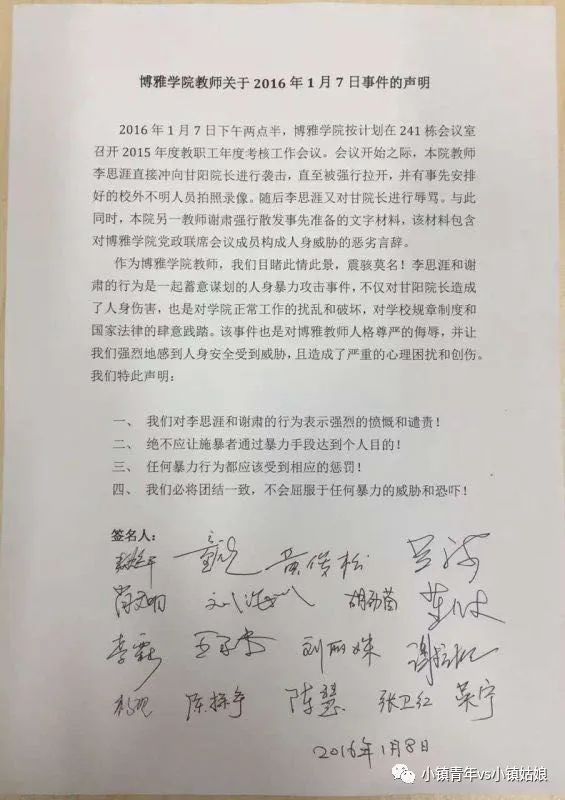 博雅学院教师关于 2016 年 1 月 7 日事件的声明
2016 年 1 月 7 日下午两点半，博雅学院按计划在 241 栋会议室
召开 2015 年度教职工年度考核工作会议。会议开始之际，本院教师
李思涯直接冲向甘阳院长进行袭击，直至被强行拉开，并有事先安排
好的校外不明人员拍照录像。随后李思涯又对甘院长进行辱骂。与此
同时，本院另一教师谢肃强行散发事先准备的文字材料，该材料包含
对博雅学院党政联席会议成员构成人身威胁的恶劣言辞。
作为博雅学院教师，我们目睹此情此景，震骇莫名！李思涯和谢
肃的行为是一起蓄意谋划的人身暴力攻击事件，不仅对甘阳院长造成
了人身伤害，也是对学院正常工作的扰乱和破坏，对学校规章制度和
国家法律的肆意践踏。该事件也是对博雅教师人格尊严的侮辱，并让
我们强烈地感到人身安全受到威胁，且造成了严重的心理困扰和创伤。
我们特此声明：
一、 我们对李思涯和谢肃的行为表示强烈的愤慨和谴责！
二、 绝不应让施暴者通过暴力手段达到个人目的！
三、 任何暴力行为都应该受到相应的惩罚！
四、 我们必将团结一致，不会屈服于任何暴力的威胁和恐吓！
签名人：
黄俊松
肖文明 刘海川
李霖 刘丽姝
陈慧 张卫红
2016年1月8日
小镇青年vs小镇姑娘